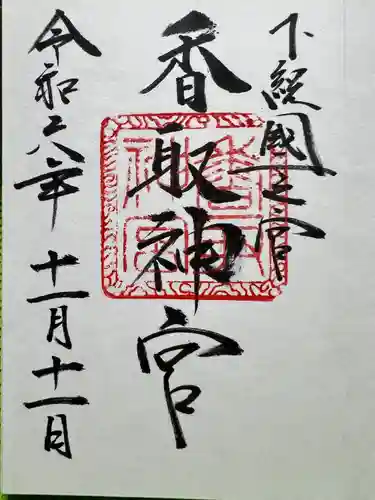 下総國一之宮
香取神宮
令和六年十一月十一日